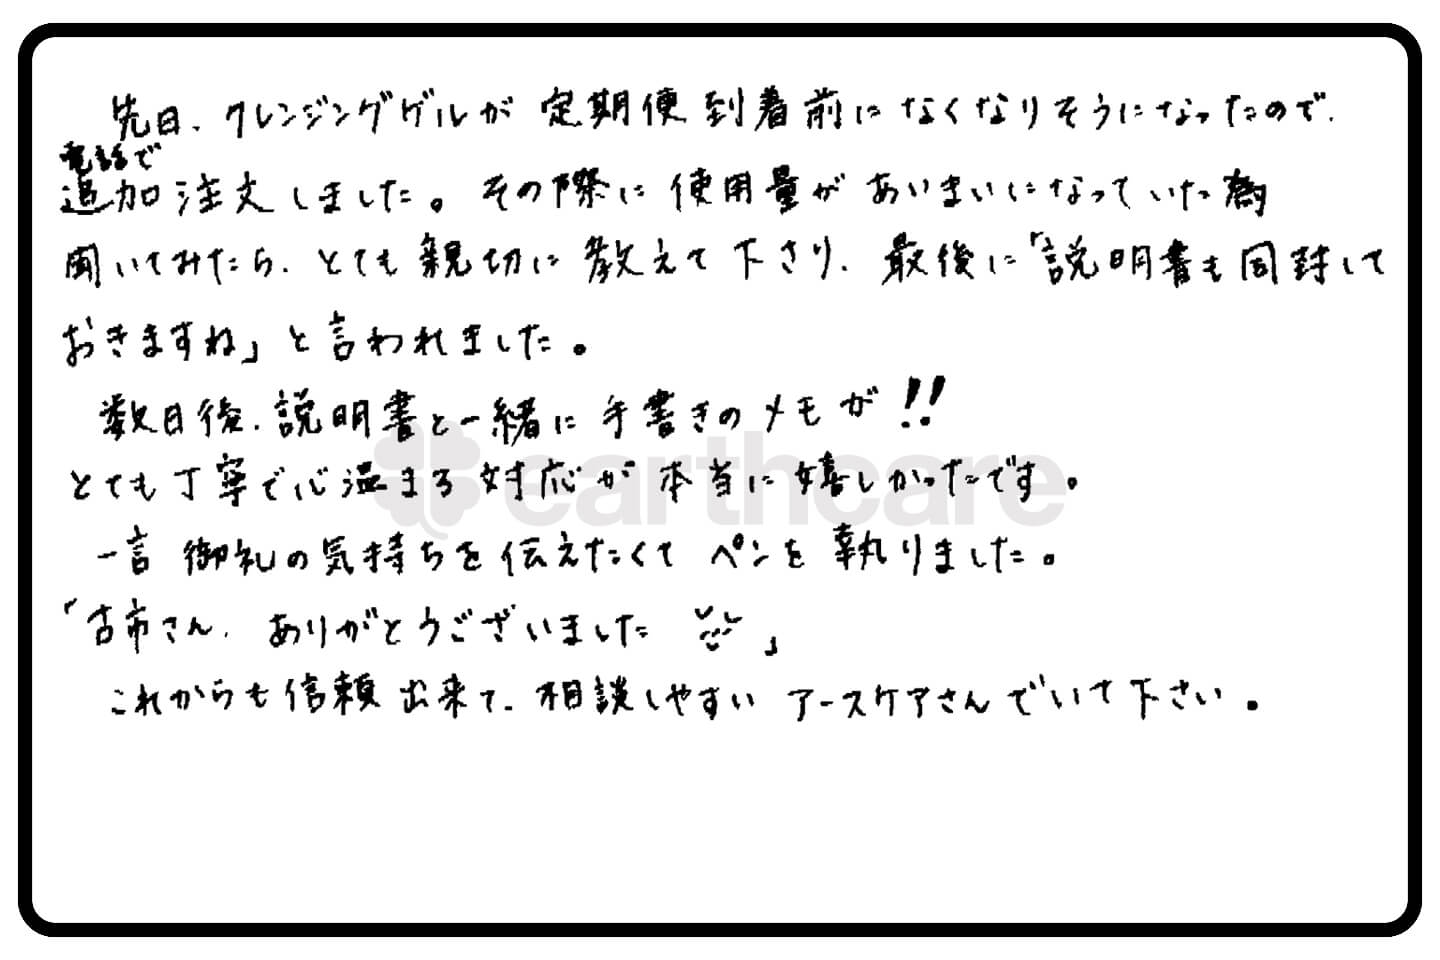 先日、クレンジングゲルが定期便到着前になくなりそうになったので、
電話で
追加注文しました。その際に使用量があいまいになっていた為
聞いてみたら、とても親切に教えて下さり、最後に「説明書も同封して
おきますね」と言われました。
数日後、説明書と一緒に手書きのメモが!!
とても丁寧で心温まる対応が本当に嬉しかったです。
earthcare
一言御礼の気持ちを伝えたくてペンを執りました。
「古市さん、ありがとうございました」
これからも信頼出来て、相談しやすいアースケアさんでいて下さい。